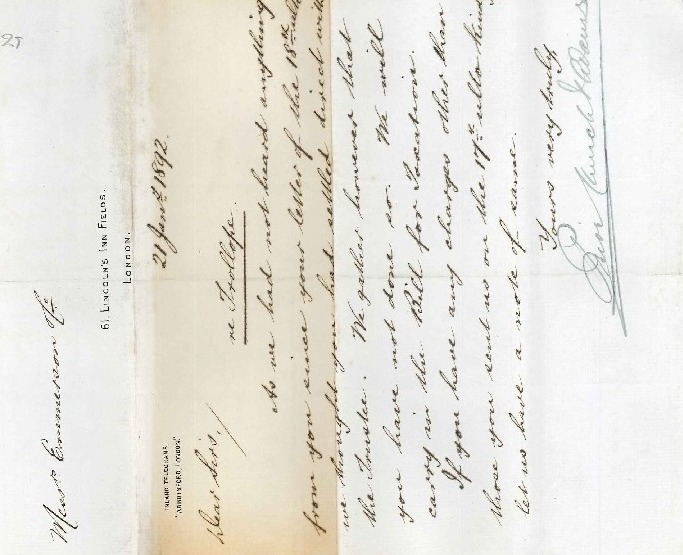 61, LINCOLN'S INN FIELDS.
LONDON.
21 Jany 1892.
INLAND TELEGRAMS
Dear Sirs,
re Trollope.
As we had not heard anything
from you since your letter of the 18th ulto
we thought you had settled direct with
the Trustee. We gather however that
you have not done so. We will
carry in the Bill for Taxation.
If you have any charges other than
those you sent us on the 17th ulto kindly
let us have a note of same.
Yours very truly,
Prior Church & Adams
Messrs Emmerson & Co